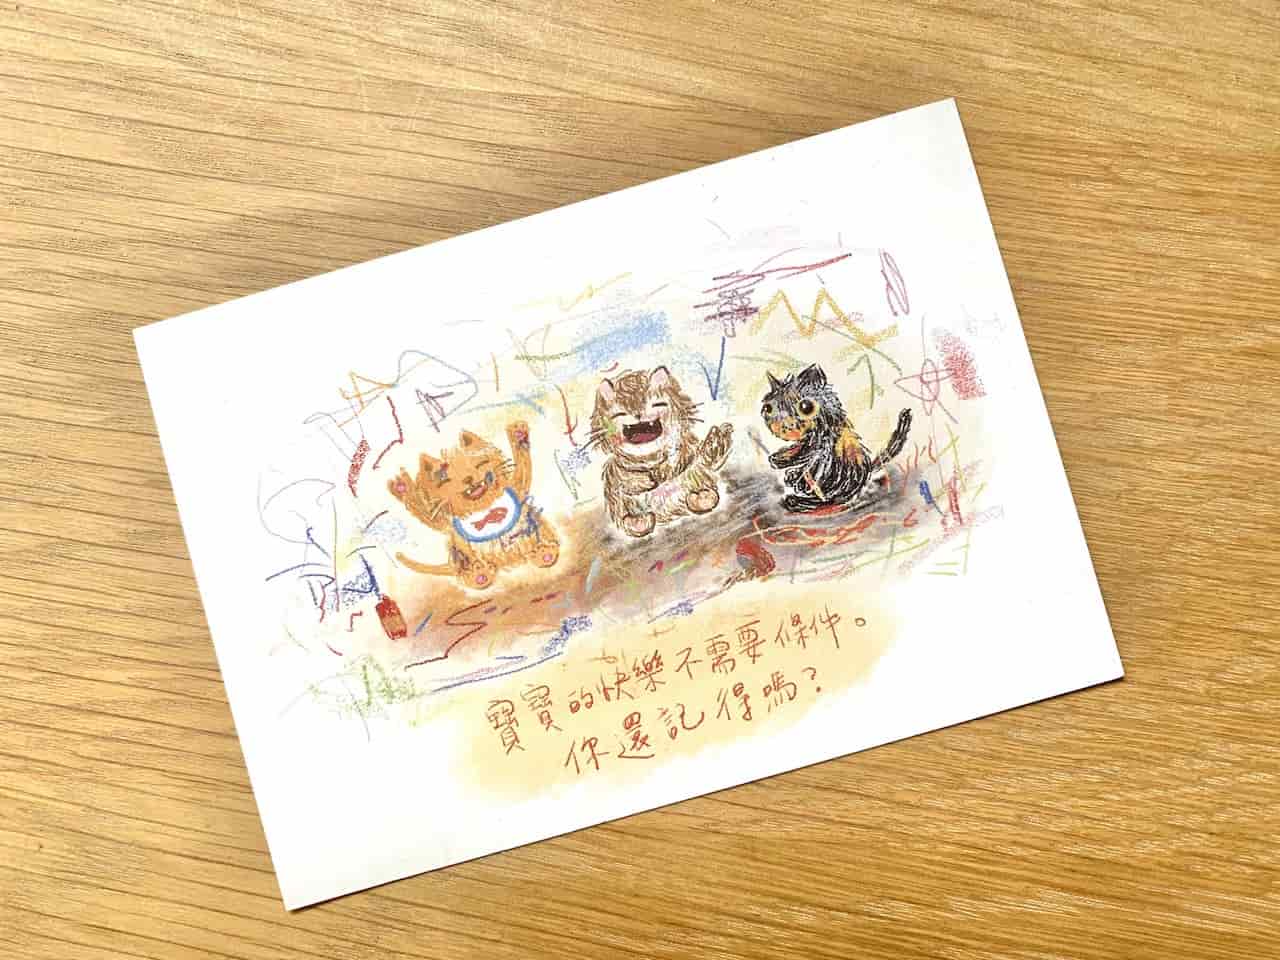 寶寶的快樂不需要條件。
你還記得嗎？